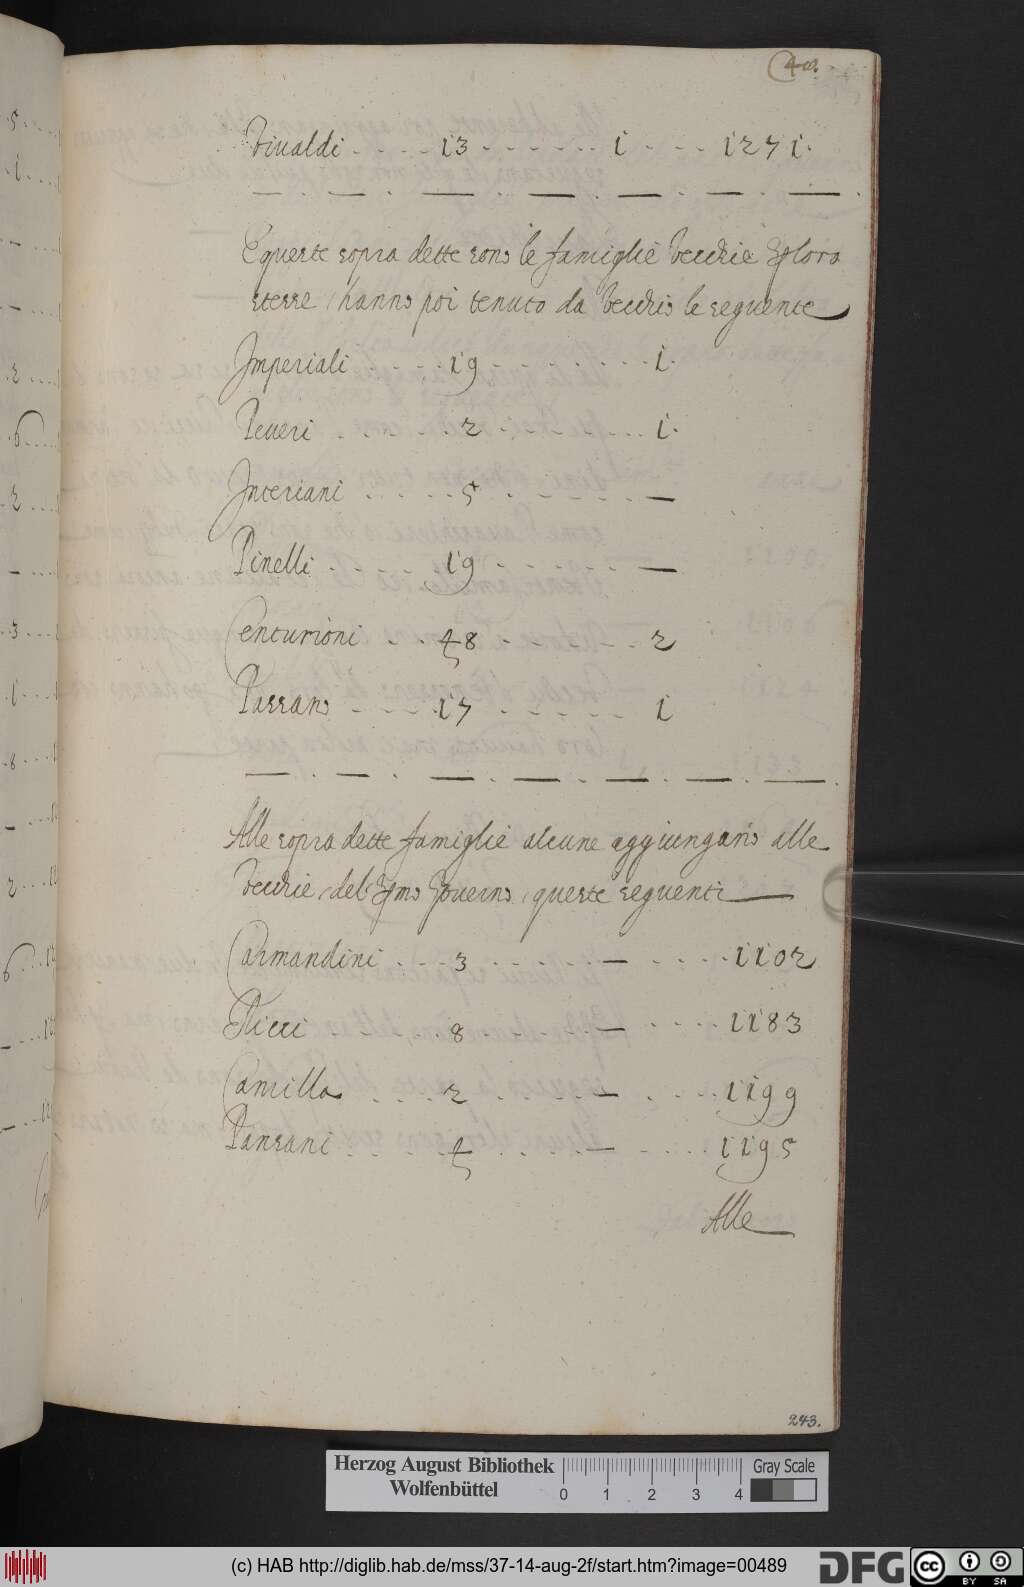 40.
Vivaldi .... 13 ....... 1 .... 1271.
E queste sopra dette sono le famiglie vecchie & loro
stesse, hanno poi tenuto da vecchio le seguente
Imperiali .... 19 ........ 1.
Peveri ..... 2 ....... 1.
Interiani ..... 5 ...... —
Pinelli ..... 19 ...... —
Centurioni ... 48 ...... 2
Passano .... 17 ...... 1
Alle sopra dette famiglie alcune aggiungano alle
vecchie, del Governo, queste seguenti
Carmandini ... 3 ..... — .... 1102
Ricci ..... 8 ..... — .... 1183
Camilla .... 2 ..... — .... 1199
Pansani ..... 4 .... — .... 1195
Alle
243.
Herzog August Bibliothek
Wolfenbüttel
0 1 2 3 4
Gray Scale
(c) HAB http://diglib.hab.de/mss/37-14-aug-2f/start.htm?image=00489
DFG
cc BY SA